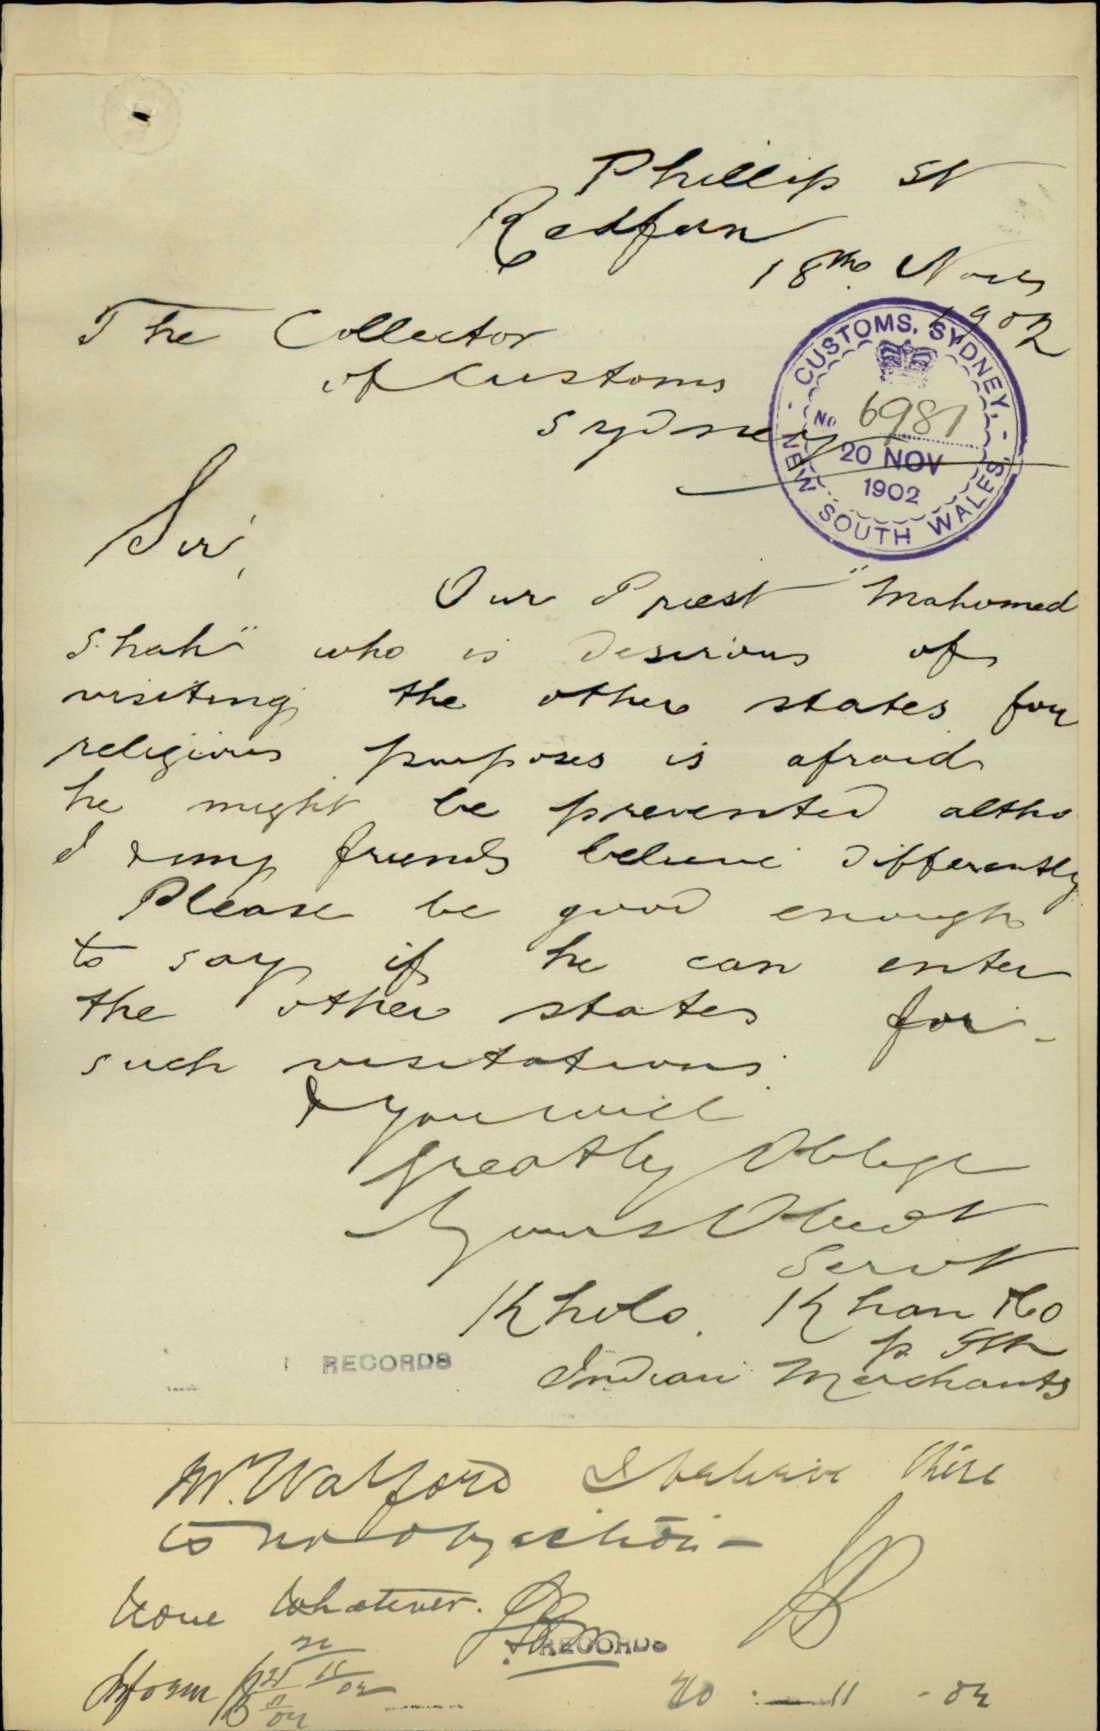 Phillip St
Redfern
18th Nov
1902
The Collector
of Customs
Sydney
CUSTOMS, SYDNEY,
No 6981
20 NOV
1902
NEW SOUTH WALES
Sir,
Our Priest "Mahomed
Shah" who is desirous of
visiting the other states for
religious purposes is afraid
he might be prevented altho
I & my friends believe differently
Please be good enough
to say if he can enter
the other states for
such visitations
& you will
greatly Oblige
Yours Obedt
Servt
Khan & Co
Indian Merchants
RECORDS
Mr. Walford I believe there
is no objection -
None whatever.
RECORDS
Inform
20 - 11 - 02